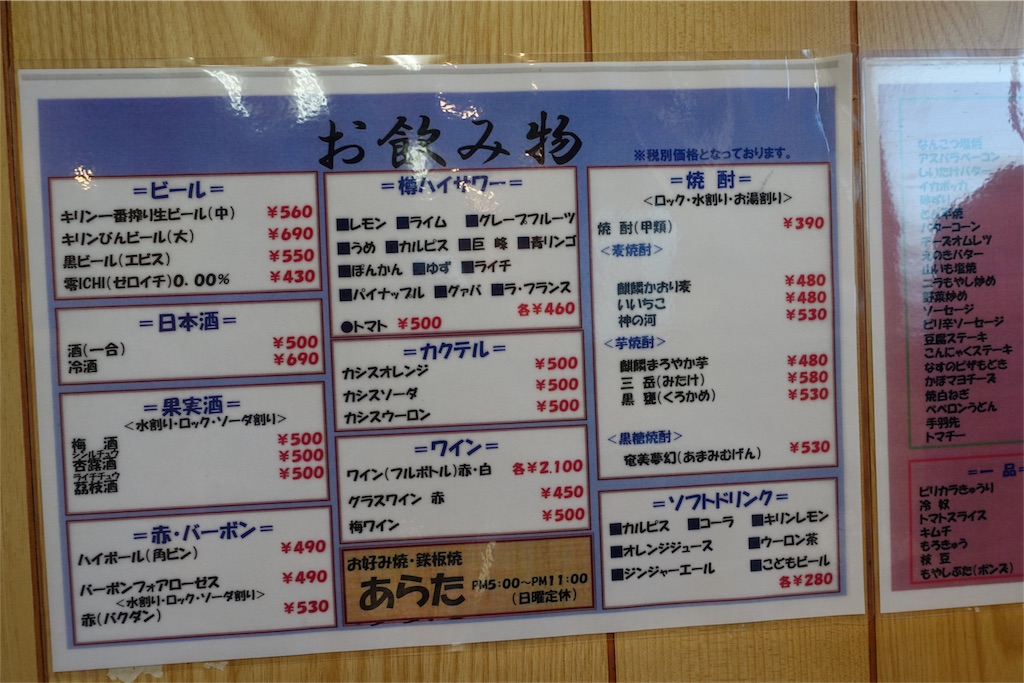 お飲み物
※税別価格となっております。
=ビール=
キリン一番搾り生ビール(中) ¥560
キリンびんビール(大) ¥690
黒ビール(エビス) ¥550
零ICHI(ゼロイチ)0.00% ¥430
=日本酒=
酒(一合) ¥500
冷酒 ¥690
=果実酒=
<水割り・ロック・ソーダ割り>
梅 酒 ¥500
シンルチュウ
杏露酒 ¥500
ライチチュウ
茘枝酒 ¥500
=赤・バーボン=
ハイボール(角ビン) ¥490
バーボンフォアローゼス ¥490
<水割り・ロック・ソーダ割り>
赤(バクダン) ¥530
=樽ハイサワー=
■レモン ■ライム ■グレープフルーツ
■うめ ■カルピス ■巨 峰 ■青リンゴ
■ぽんかん ■ゆず ■ライチ
■パイナップル ■グァバ ■ラ・フランス
各¥460
●トマト ¥500
=カクテル=
カシスオレンジ ¥500
カシスソーダ ¥500
カシスウーロン ¥500
=ワイン=
ワイン(フルボトル)赤・白 各¥2,100
グラスワイン 赤 ¥450
梅ワイン ¥500
お好み焼・鉄板焼
あらた PM5:00~PM11:00
(日曜定休)
=焼 酎=
<ロック・水割り・お湯割り>
焼 酎(甲類) ¥390
<麦焼酎>
麒麟かおり麦 ¥480
いいちこ ¥480
神の河 ¥530
<芋焼酎>
麒麟まろやか芋 ¥480
三 岳(みたけ) ¥580
黒 甕(くろかめ) ¥530
<黒糖焼酎>
奄美夢幻(あまみむげん) ¥530
=ソフトドリンク=
■カルピス ■コーラ ■キリンレモン
■オレンジジュース ■ウーロン茶
■ジンジャーエール ■こどもビール
各¥280
なんこつ塩焼
アスパラベーコン
しいたけバター
イカポッカ
とん平焼
バターコーン
チーズオムレツ
えのきバター
山いも塩焼
ニラもやし炒め
野菜炒め
ソーセージ
ピリ辛ソーセージ
豆腐ステーキ
こんにゃくステーキ
なすのピザもどき
かぼマヨチーズ
焼白ねぎ
ペペロンうどん
手羽先
トマチー
=一 品
ピリカラきゅうり
冷 奴
トマトスライス
キムチ
もろきゅう
枝 豆
もやしぶた(ポンズ)